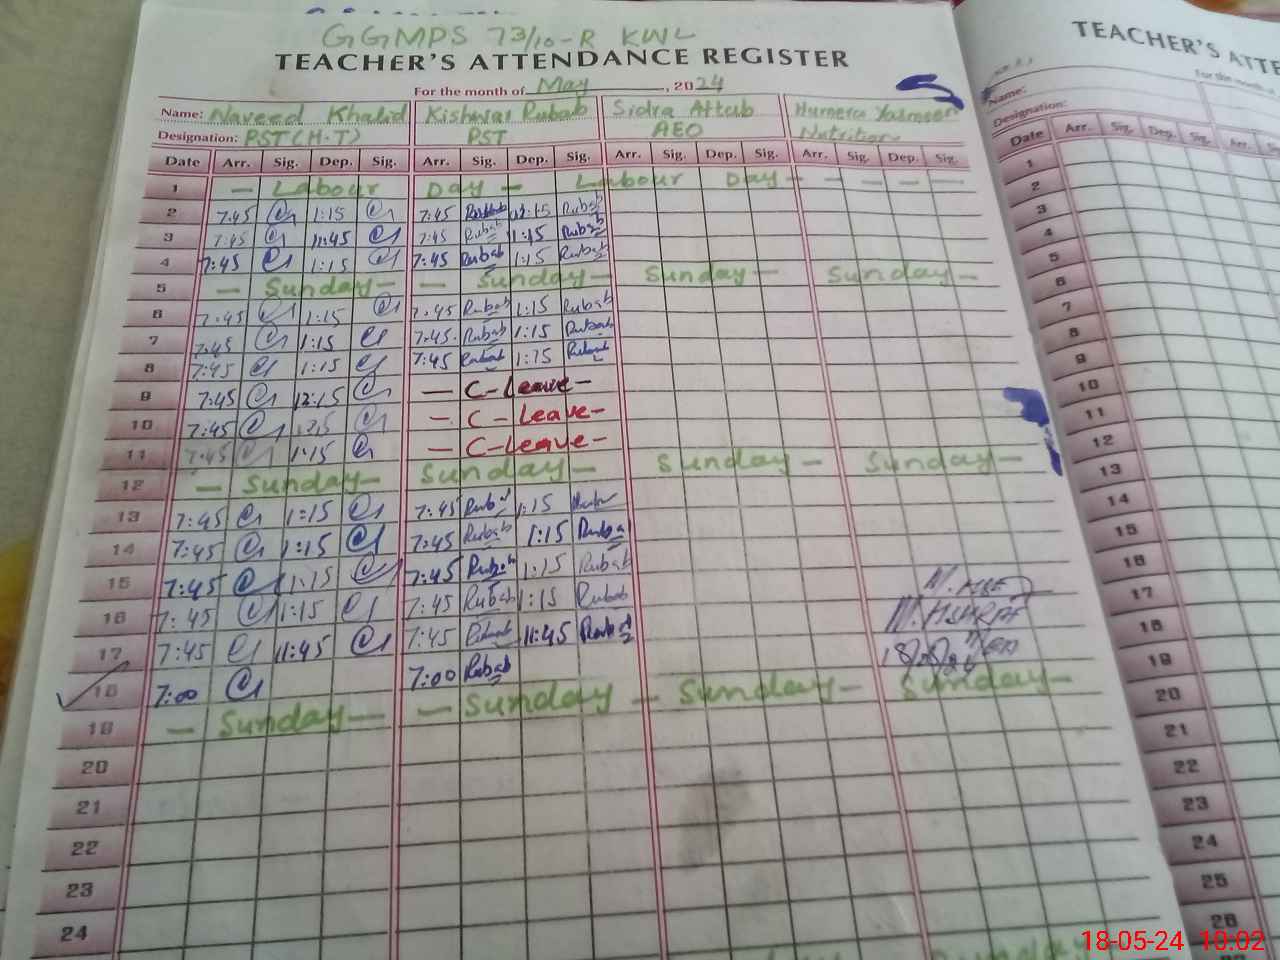 GGMPS 73/10-R KWL
TEACHER'S ATTENDANCE REGISTER
For the month of May, 2024
Name: Naveed Khalid Kishwar Rubab Sidra Aftab Humera Yasmeen
Designation: PST (H.T) PST AEO Nutrition
Date Arr. Sig. Dep. Sig. Arr. Sig. Dep. Sig. Arr. Sig. Dep. Sig. Arr. Sig. Dep. Sig.
1 - Labour Day - Labour Day - - - - -
2 7:45 1:15 7:45 Rubab 1:15 Rubab
3 7:45 11:45 7:45 Rubab 1:15 Rubab
4 7:45 1:15 7:45 Rubab 1:15 Rubab
5 - Sunday - - Sunday - Sunday - Sunday -
6 7:45 1:15 7:45 Rubab 1:15 Rubab
7 7:45 1:15 7:45 Rubab 1:15 Rubab
8 7:45 1:15 7:45 Rubab 1:15 Rubab
9 7:45 12:15 - C-Leave-
10 7:45 - C-Leave-
11 7:45 1:15 - C-Leave-
12 - Sunday - Sunday - Sunday - Sunday -
13 7:45 1:15 7:45 Rubab 1:15
14 7:45 1:15 7:45 Rubab 1:15 Rubab
15 7:45 1:15 7:45 Rubab 1:15 Rubab
16 7:45 1:15 7:45 Rubab 1:15 Rubab
17 7:45 11:45 7:45 Rubab 11:45 Rubab
18 7:00 7:00 Rubab
19 - Sunday - - Sunday - Sunday - Sunday -
20
21
22
23
24
Sunday
TEACHER'S
For the month of
Name:
Designation:
Date Arr. Sig. Dep. Sig. Arr.
1
2
3
4
5
6
7
8
9
10
11
12
13
14
15
16
17
18
19
20
21
22
23
24
25
26
18-05-24 10:02